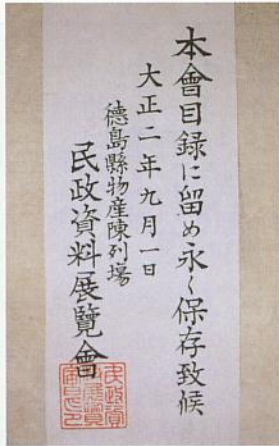 本會目録に留め永く保存致候
大正二年九月一日
徳島縣物産陳列場
民政資料展覽會